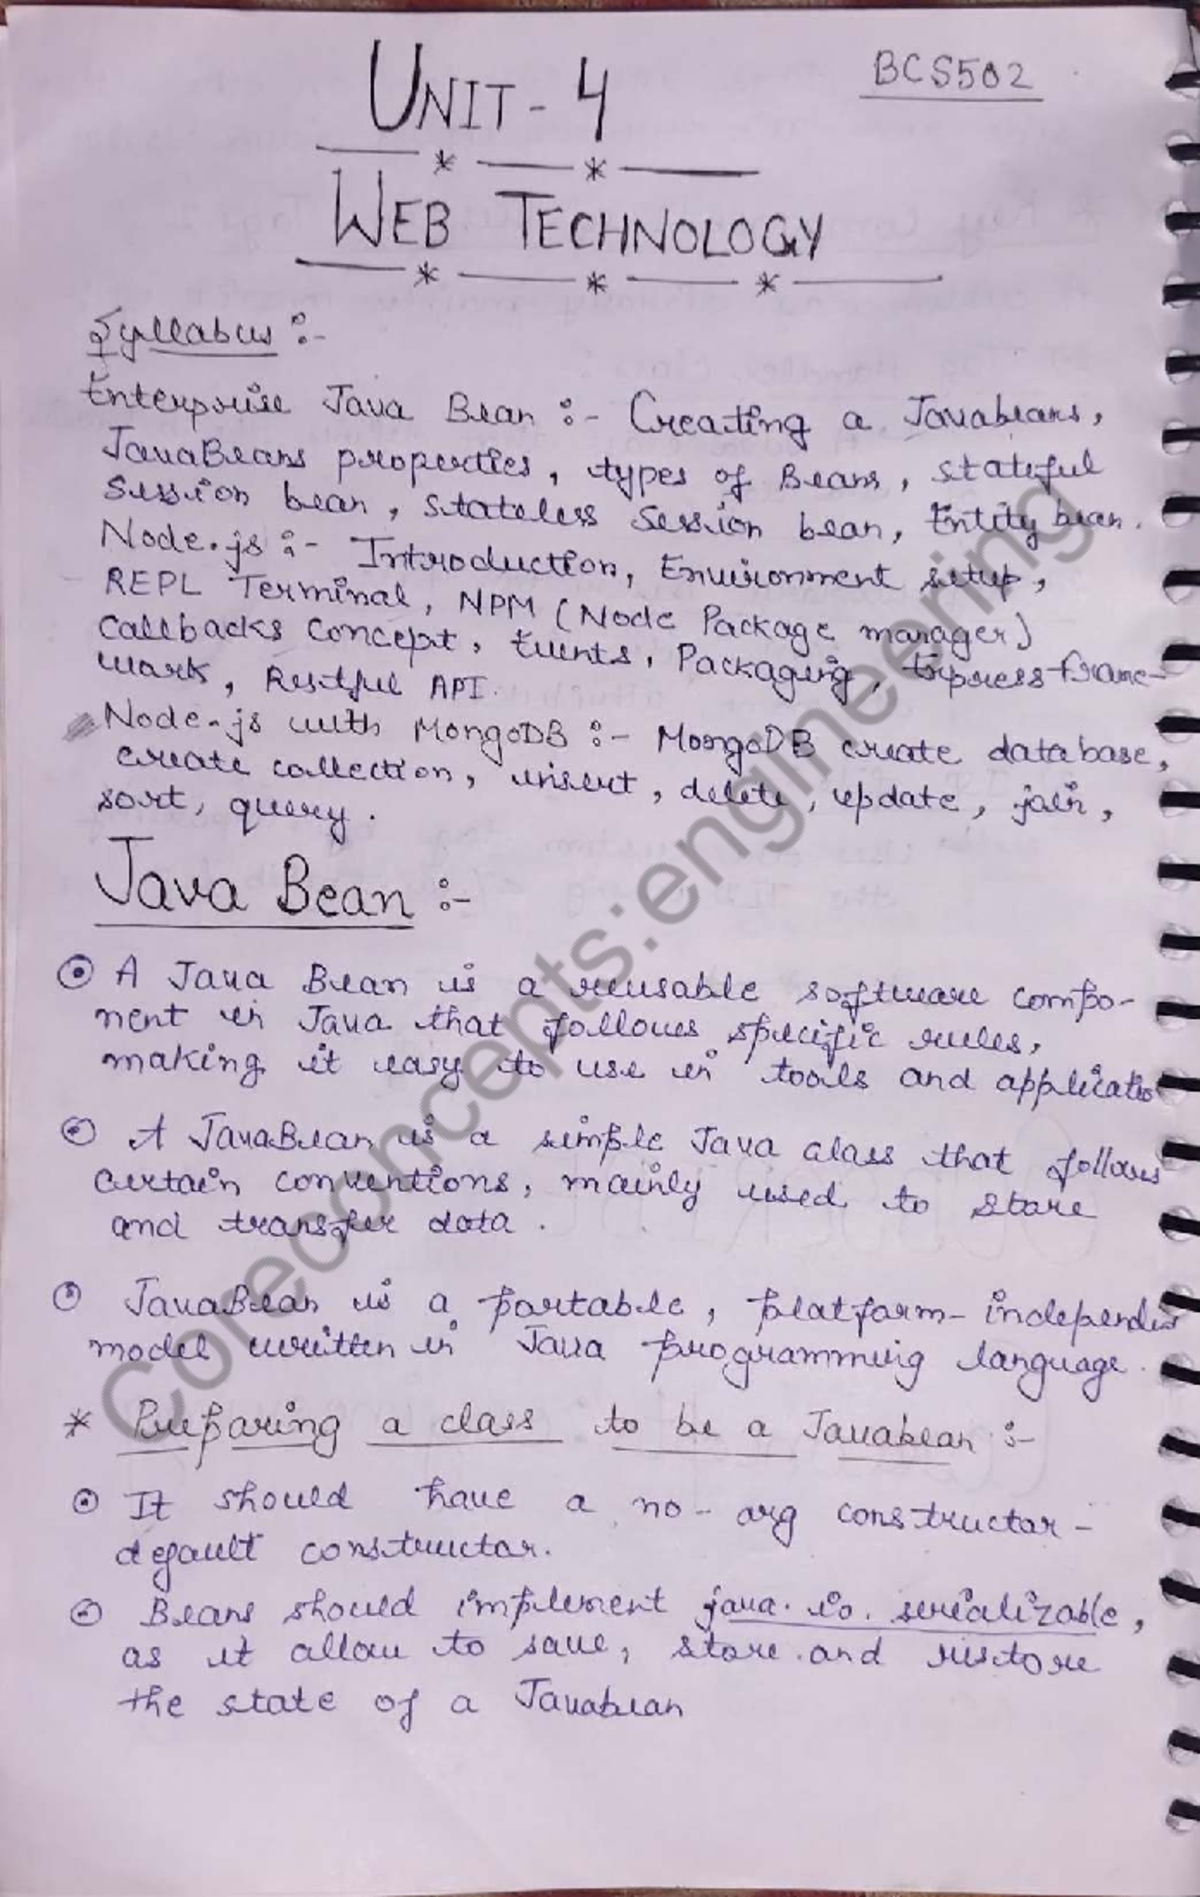 BCS502
UNIT-4
WEB TECHNOLOGY
Syllabus :-
Enterprise Java Bean :- Creating a Javabeans,
JavaBeans properties, types of Beans, stateful
Session bean, stateless session bean, Entity bean.
Node.js :- Introduction, Environment setup,
REPL Terminal, NPM (Node Package manager)
Callbacks Concept, Events, Packaging, Express frame-
work, Restful API.
Node.js with MongoDB :- MongoDB create database,
create collection, insert, delete, update, join,
sort, query.
Java Bean :-
A Java Bean is a reusable software compo-
nent in Java that follows specific rules,
making it easy to use in tools and applicatio
A JavaBean is a simple Java class that follows
certain conventions, mainly used to store
and transfer data.
JavaBean is a portable, platform-independent
model written in Java programming language.
* Preparing a class to be a Javabean :-
It should have a no-arg constructor-
default constructor.
Beans should implement java.io.serializable,
as it allow to save, store and restore
the state of a Javabean
Coreconcepts.engineering